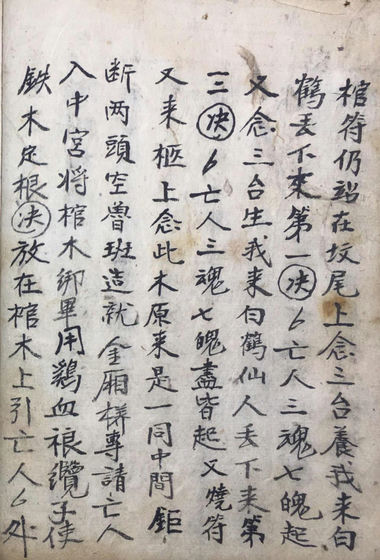 棺符仍站在坟尾上念三台養我来白
鶴丢下来第一决卜亡人三魂七魄起
又念三台生我来白鶴仙人丢下来第
三决卜亡人三魂七魄盡皆起又燒符
又来柩上念此木原来是一同中間鉅
断两頭空魯班造就金厢样專請亡人
入中宮将棺木綁畢用鷄血裉纜子使
鉄木定根决放在棺木上引亡人卜外